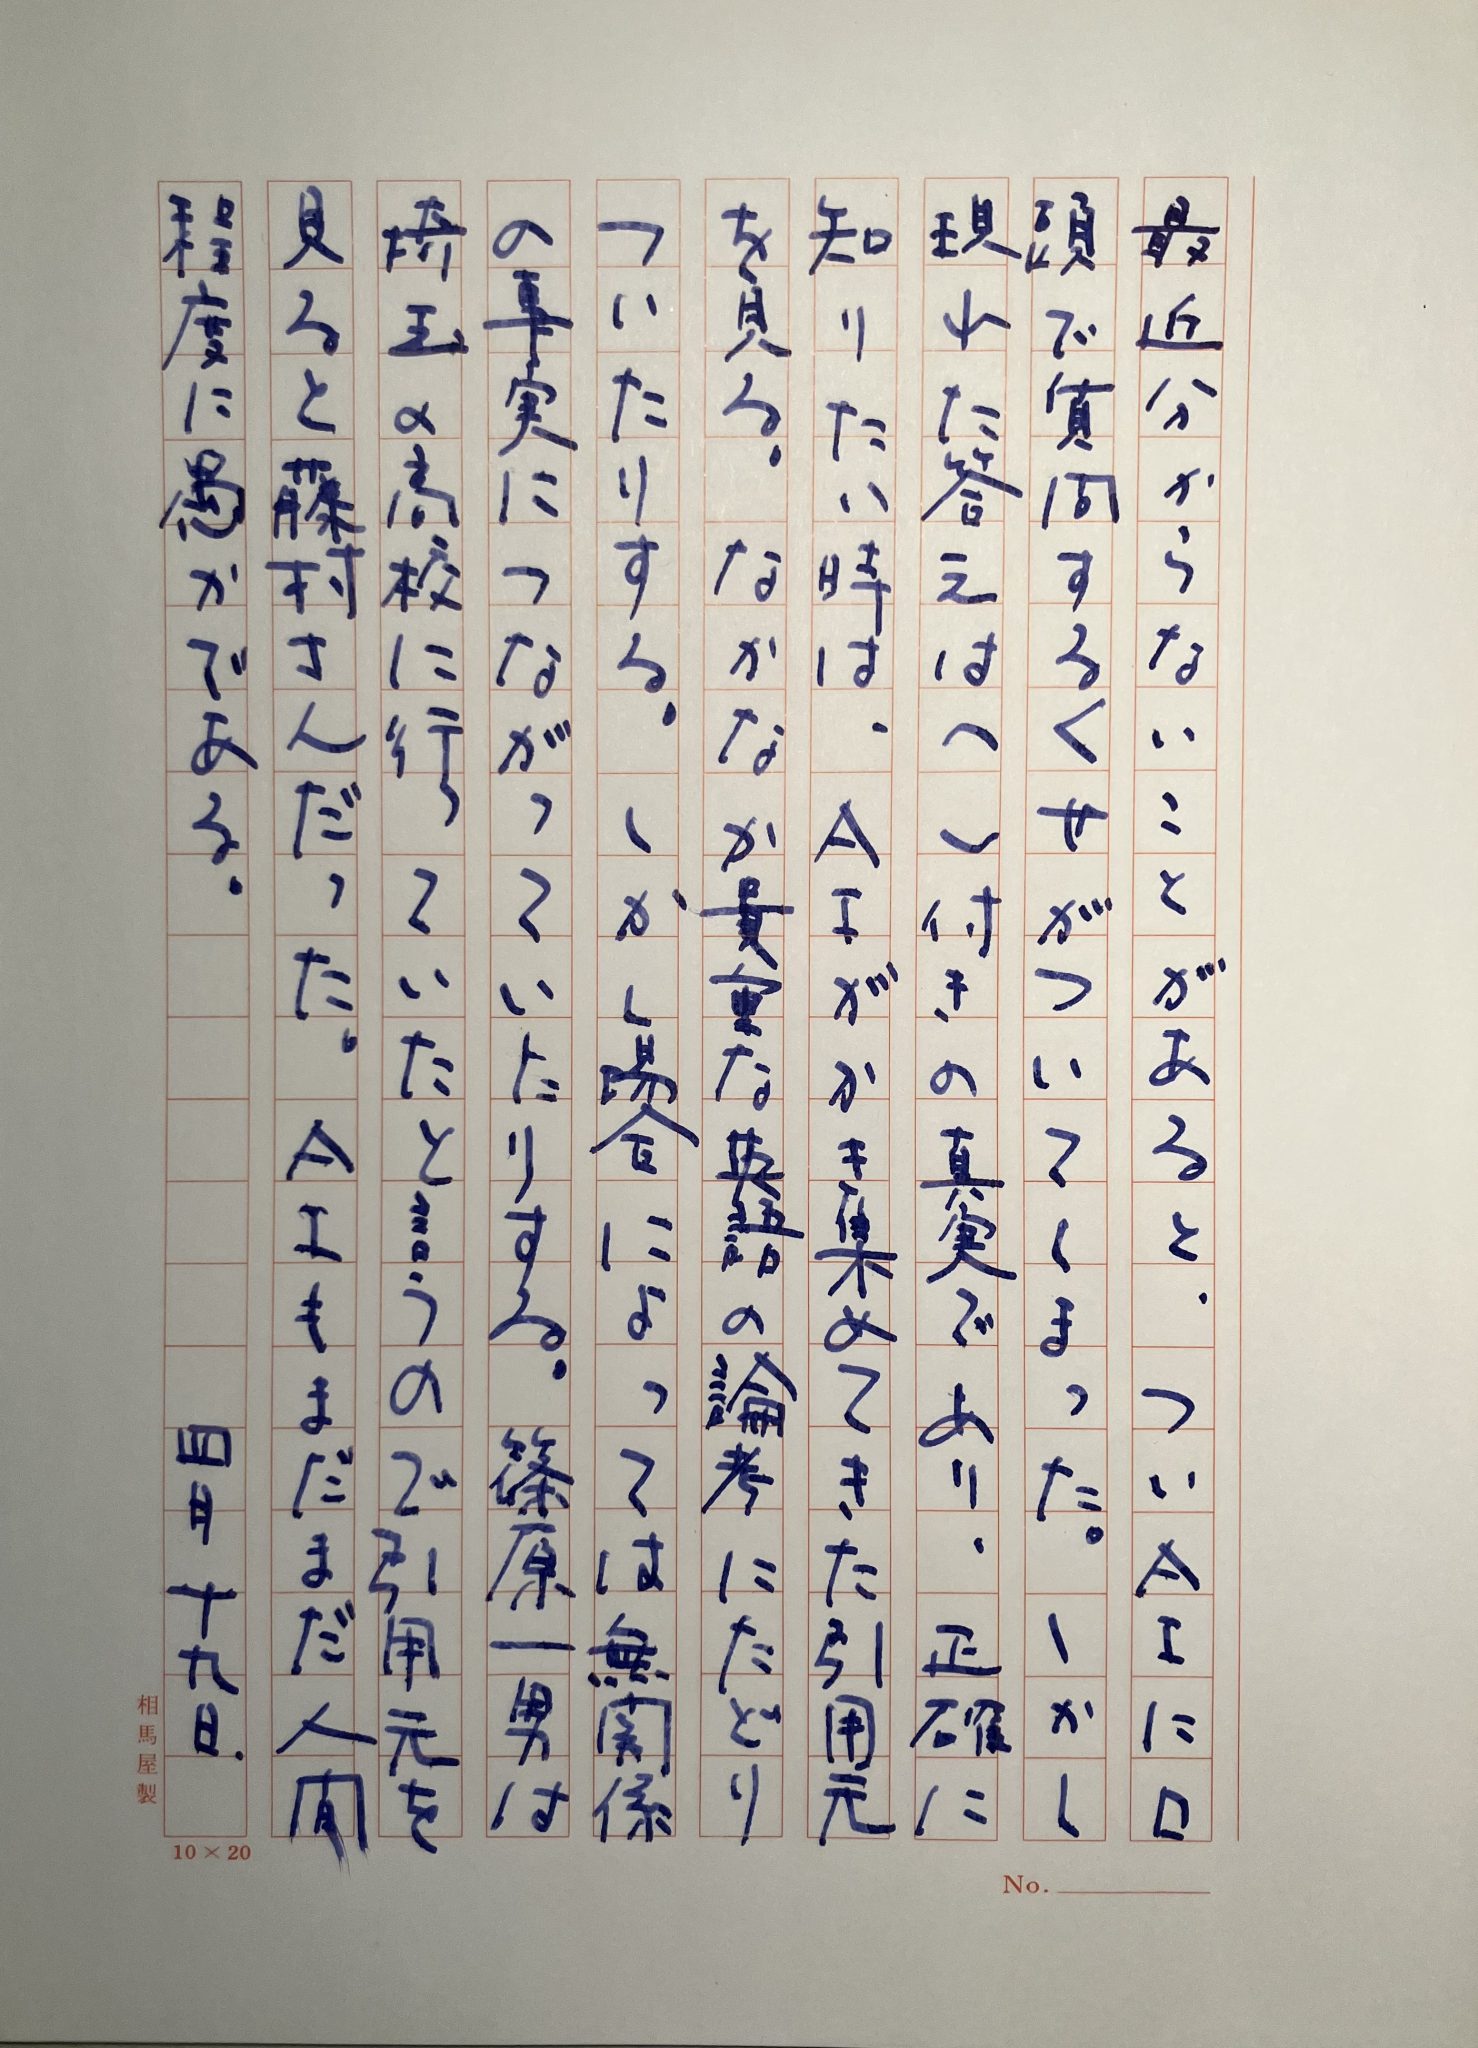 最近分からないことがあると、ついAIに口
頭で質問するくせがついてしまった。しかし
現れた答えはヘし付きの真実であり、正確に
知りたい時は、AIがかき集めてきた引用元
を見る。なかなか貴重な英語の論考にたどり
ついたりする。しかし場合によっては無関係
の事実につながっていたりする。篠原一男は
埼玉の高校に行っていたと言うので引用元を
見ると藤村さんだった。AIもまだまだ人間
程度に愚かである。四月十九日.
相馬屋製
10×20
No.